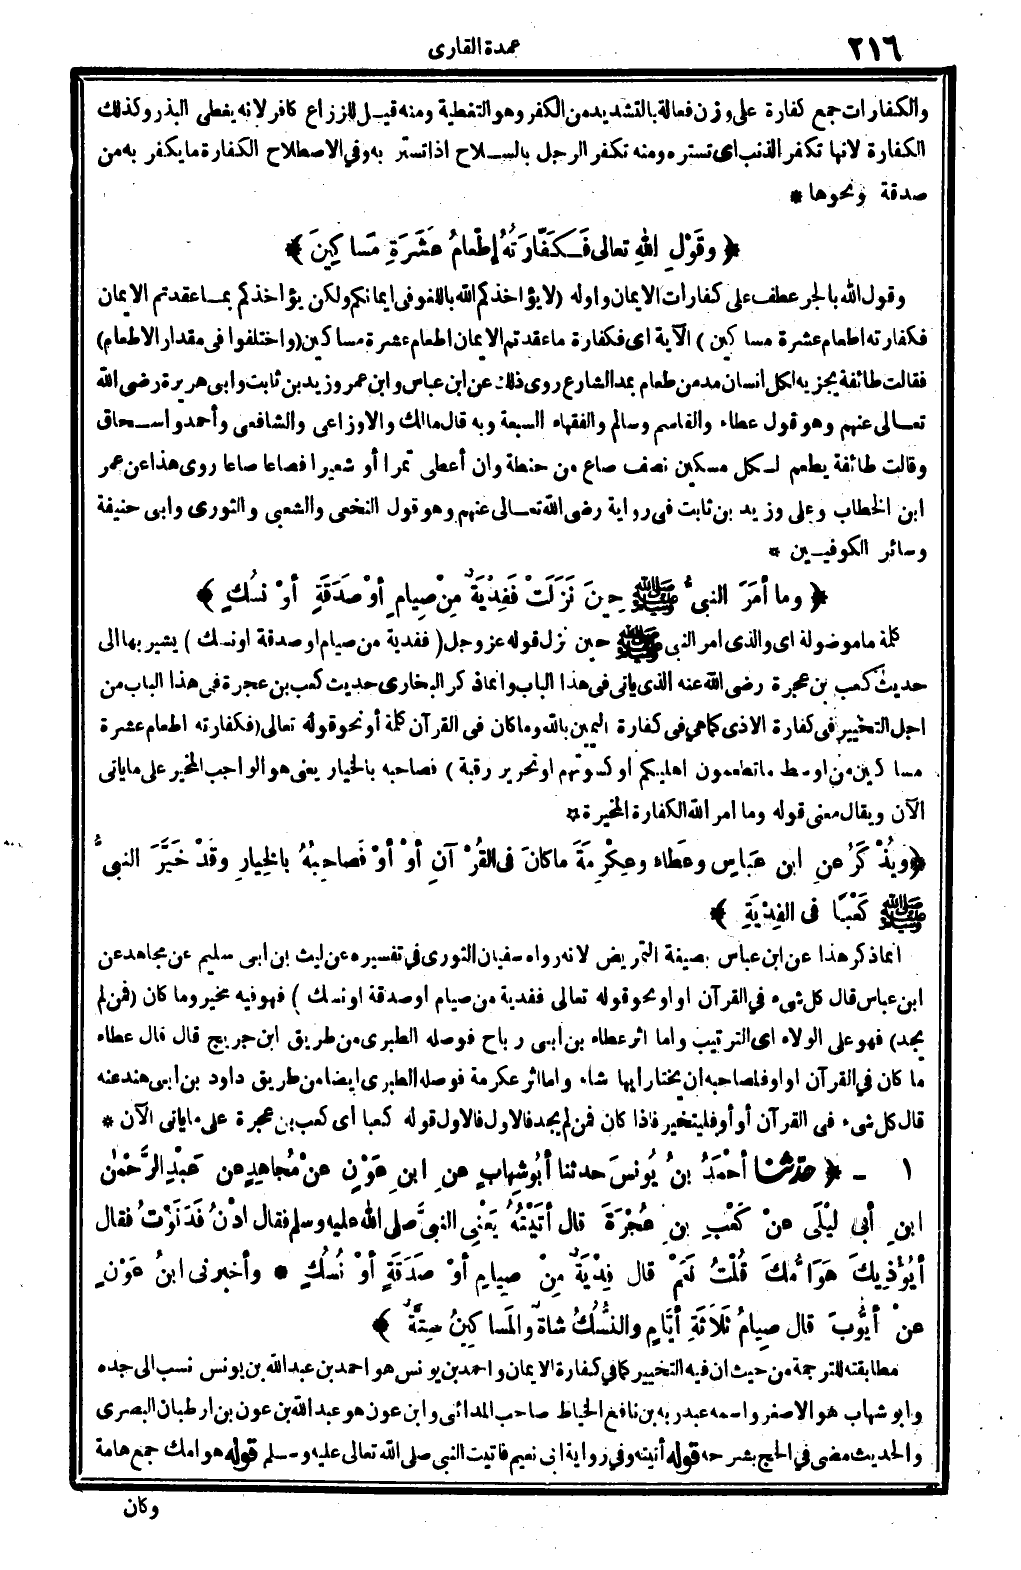 ٢١٦
عمدة القارى
والكفارات جمع كفارة على وزن فعالة بالتشديد من الكفر وهو التغطية ومنه قيل للزراع كافر لانه يغطى البذر وكذلك
الكفارة لانها تكفر الذنب اى تستره ومنه تكفر الرجل بالسلاح اذا تستر به وفي الاصطلاح الكفارة ما يكفر به من
صدقة ونحوها *
﴿ وقَوْلِ اللهِ تعالى فَكَفَّارَتُهُ إطْعامُ عَشَرَةِ مَساكِينَ ﴾
وقول الله بالجر عطف على كفارات الايمان واوله (لا يؤاخذكم الله باللغو فى ايمانكم ولكن يؤاخذكم بما عقدتم الايمان
فكفارته اطعام عشرة مساكين ) الآية اى فكفارة ما عقدتم الايمان اطعام عشرة مساكين (واختلفوا فى مقدار الاطعام)
فقالت طائفة يجزيه لكل انسان مد من طعام بمد الشارع روى ذلك عن ابن عباس وابن عمر وزيد بن ثابت وابى هريرة رضى الله
تعالى عنهم وهو قول عطاء والقاسم وسالم والفقهاء السبعة وبه قال مالك والاوزاعى والشافعى وأحمد واسحاق
وقالت طائفة يطعم لكل مسكين نصف صاع من حنطة وان أعطى تمرا أو شعيرا فصاعا صاعا روى هذا عن عمر
ابن الخطاب وعلى وزيد بن ثابت فى رواية رضى الله تعالى عنهم وهو قول النخعى والشعبى والثورى وابى حنيفة
وسائر الكوفيين *
﴿ وما أمَرَ النبىُّ ﷺ حِينَ نَزَلَتْ فَفِدْيَةٌ مِنْ صِيامٍ أوْ صَدَقَةٍ أوْ نُسُكٍ ﴾
كلمة ما موصولة اى والذى امر النبى ﷺ حين نزل قوله عز وجل ( ففدية من صيام او صدقة او نسك ) يشير بها الى
حديث كعب بن عجرة رضى الله عنه الذى ياتى فى هذا الباب وانما ذكر البخارى حديث كعب بن عجرة فى هذا الباب من
اجل التخيير فى كفارة الاذى كما هي فى كفارة اليمين بالله وما كان فى القرآن كلمة أو نحو قوله تعالى (فكفارته اطعام عشرة
مساكين من اوسط ما تطعمون اهليكم او كسوتهم او تحرير رقبة ) فصاحبه بالخيار يعنى هو الواجب المخير على ما ياتى
الآن ويقال معنى قوله وما امر الله الكفارة المخيرة *
﴿ ويُذْكَرُ عنِ ابنِ عَبَّاسٍ وعَطاءٍ وعِكْرِمَةَ ما كانَ فى القُرْآنِ أوْ أوْ فَصاحِبُهُ بالخِيارِ وقَدْ خَيَّرَ النبىُّ
ﷺ كَعْبًا فى الفِدْيَةِ ﴾
انما ذكر هذا عن ابن عباس بصيغة التمريض لانه رواه سفيان الثورى في تفسيره عن ليث بن ابى سليم عن مجاهد عن
ابن عباس قال كل شىء في القرآن او او نحو قوله تعالى ففدية من صيام او صدقة او نسك ) فهو فيه مخير وما كان (فمن لم
يجد) فهو على الولاء اى الترتيب واما اثر عطاء بن ابى رباح فوصله الطبرى من طريق ابن جريج قال قال عطاء
ما كان في القرآن او او فلصاحبه ان يختار ايها شاء واما اثر عكرمة فوصله الطبرى ايضا من طريق داود بن ابى هند عنه
قال كل شىء فى القرآن أو أو فليتخير فاذا كان فمن لم يجد فالاول فالاول قوله كعبا اى كعب بن عجرة على ما ياتى الآن *
١ - ﴿ حدثنا أحْمَدُ بنُ يُونُسَ حدثنا أبُو شِهابٍ عنِ ابنِ عَوْنٍ عنْ مُجاهِدٍ عن عَبْدِ الرَّحْمٰنِ
ابنِ أبى لَيْلَى عنْ كَعْبِ بنِ عُجْرَةَ قال أتَيْتُهُ يَعْنِى النبىَّ صلى الله عليه وسلم فقال ادْنُ فَدَنَوْتُ فقال
أيُؤْذِيكَ هَوَامُّكَ قُلْتُ نَعَمْ قال فِدْيَةٌ مِنْ صِيامٍ أوْ صَدَقَةٍ أوْ نُسُكٍ * وأخبرنى ابنُ عَوْنٍ
عنْ أيُّوبَ قال صِيامُ ثَلَاثَةِ أيَّامٍ والنُّسُكُ شاةٌ والمَساكِينُ سِتَّةٌ ﴾
مطابقته للترجمة من حيث ان فيه التخيير كما في كفارة الايمان واحمد بن يونس هو احمد بن عبدالله بن يونس نسب الى جده
وابو شهاب هو الاصغر واسمه عبدربه بن نافع الخياط صاحب المدائنى وابن عون هو عبدالله بن عون بن ارطبان البصرى
والحديث مضى في الحج بشرحه قوله أتيته وفي رواية ابى نعيم فاتيت النبى صلى الله تعالى عليه وسلم قوله هوامك جمع هامة
وكان